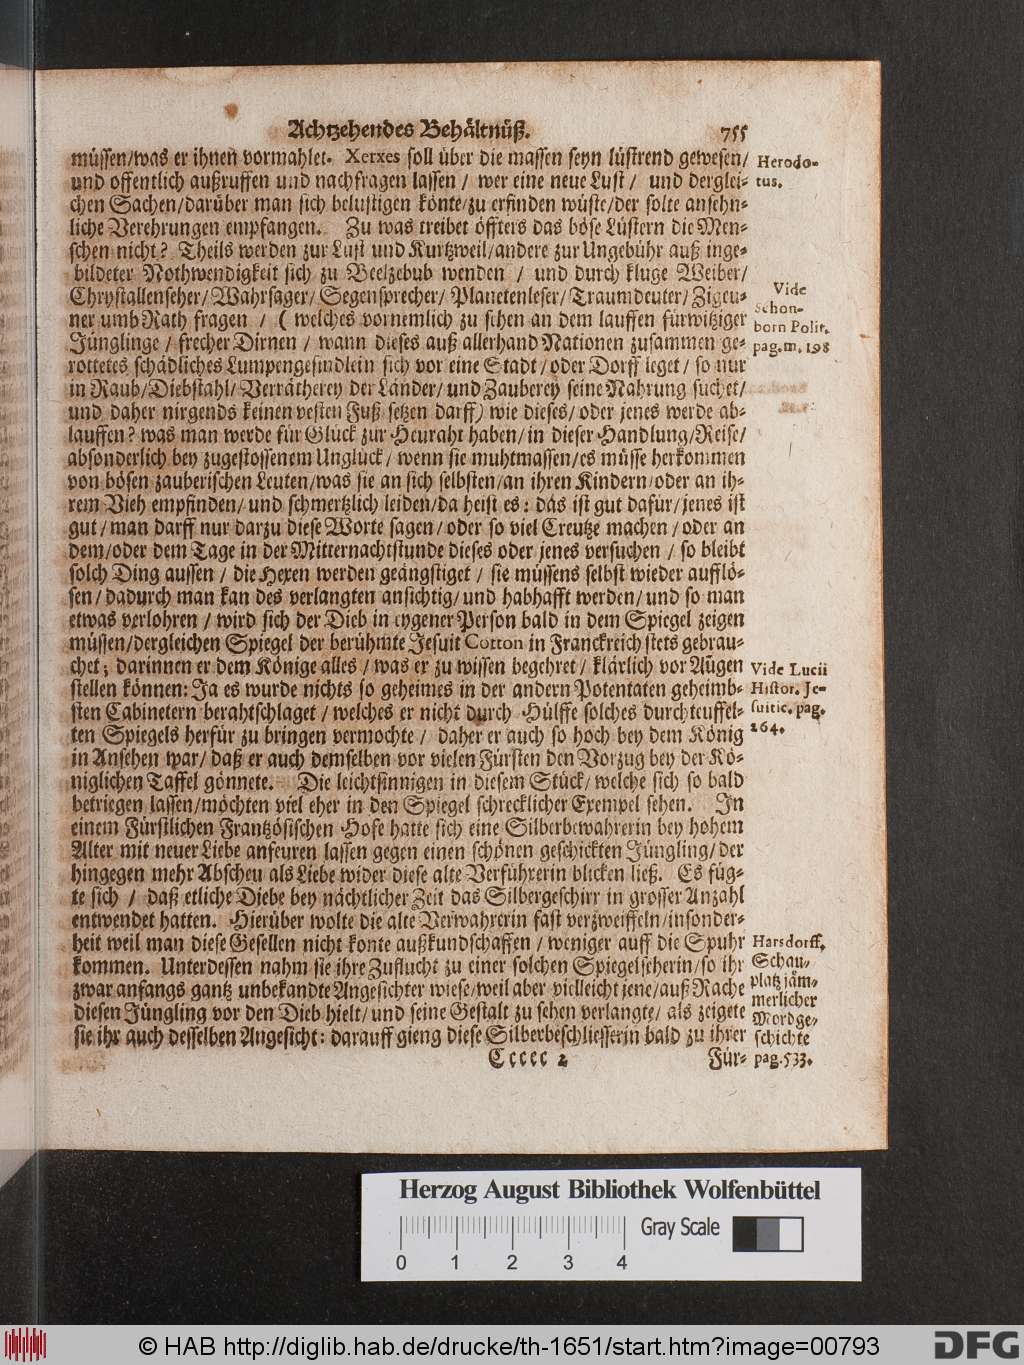 Achtzehendes Behältnüß. 755
müssen/was er ihnen vormahlet. Xerxes soll über die massen seyn lüstrend gewesen/
und offentlich außruffen und nachfragen lassen / wer eine neue Lust / und derglei-
chen Sachen/darüber man sich belustigen könte/zu erfinden wüste/der solte ansehn-
liche Verehrungen empfangen. Zu was treibet öffters das böse Lüstern die Men-
schen nicht? Theils werden zur Lust und Kurtzweil/andere zur Ungebühr auß inge-
bildeter Nothwendigkeit sich zu Beelzebub wenden / und durch kluge Weiber/
Chrystallenseher/Wahrsager/Segensprecher/Planetenleser/Traumdeuter/Zigeu-
ner umb Rath fragen / ( welches vornemlich zu sehen an dem lauffen fürwitziger
Jünglinge / frecher Dirnen / wann dieses auß allerhand Nationen zusammen ge-
rottetes schädliches Lumpengesindlein sich vor eine Stadt/oder Dorff leget / so nur
in Raub/Diebstahl/Verrätherey der Länder/und Zauberey seine Nahrung suchet/
und daher nirgends keinen vesten Fuß setzen darff) wie dieses/oder jenes werde ab-
lauffen? was man werde für Glück zur Heuraht haben/in dieser Handlung/Reise/
absonderlich bey zugestossenem Unglück/wenn sie muhtmassen/es müsse herkommen
von bösen zauberischen Leuten/was sie an sich selbsten/an ihren Kindern/oder an ih-
rem Vieh empfinden/und schmertzlich leiden/da heist es: das ist gut dafür/jenes ist
gut/man darff nur darzu diese Worte sagen/oder so viel Creutze machen/oder an
dem/oder dem Tage in der Mitternachtstunde dieses oder jenes versuchen / so bleibt
solch Ding aussen / die Hexen werden geängstiget / sie müssens selbst wieder aufflö-
sen/dadurch man kan des verlangten ansichtig/und habhafft werden/und so man
etwas verlohren / wird sich der Dieb in eygener Person bald in dem Spiegel zeigen
müssen/dergleichen Spiegel der berühmte Jesuit Cotton in Franckreich stets gebrau-
chet; darinnen er dem Könige alles / was er zu wissen begehret / klärlich vor Augen
stellen können: Ja es wurde nichts so geheimes in der andern Potentaten geheimb-
sten Cabinetern berahtschlaget / welches er nicht durch Hülffe solches durchteuffel-
ten Spiegels herfür zu bringen vermochte / daher er auch so hoch bey dem König
in Ansehen war/daß er auch demselben vor vielen Fürsten den Vorzug bey der Kö-
niglichen Taffel gönnete. Die leichtsinnigen in diesem Stück/welche sich so bald
betriegen lassen/möchten viel eher in den Spiegel schrecklicher Exempel sehen. In
einem Fürstlichen Frantzösischen Hofe hatte sich eine Silberbewahrerin bey hohem
Alter mit neuer Liebe anfeuren lassen gegen einen schönen geschickten Jüngling/der
hingegen mehr Abscheu als Liebe wider diese alte Verführerin blicken ließ. Es füg-
te sich / daß etliche Diebe bey nächtlicher Zeit das Silbergeschirr in grosser Anzahl
entwendet hatten. Hierüber wolte die alte Verwahrerin fast verzweiffeln/insonder-
heit weil man diese Gesellen nicht konte außkundschaffen / weniger auff die Spuhr
kommen. Unterdessen nahm sie ihre Zuflucht zu einer solchen Spiegelseherin/so ihr
zwar anfangs gantz unbekandte Angesichter wiese/weil aber vielleicht jene/auß Rache
diesen Jüngling vor den Dieb hielt/und seine Gestalt zu sehen verlangte/ als zeigete
sie ihr auch desselben Angesicht: darauff gieng diese Silberbeschliesserin bald zu ihrer
Ccccc 2 Für-
Herodo-
tus.
Vide
Schon-
born Polit.
pag.m.198
Vide Lucii
Histor. Je-
suitic. pag.
264.
Harsdorff.
Schau-
platz jäm-
merlicher
Mordge-
schichte
pag.533.
Herzog August Bibliothek Wolfenbüttel
Gray Scale
0 1 2 3 4
© HAB http://diglib.hab.de/drucke/th-1651/start.htm?image=00793
DFG